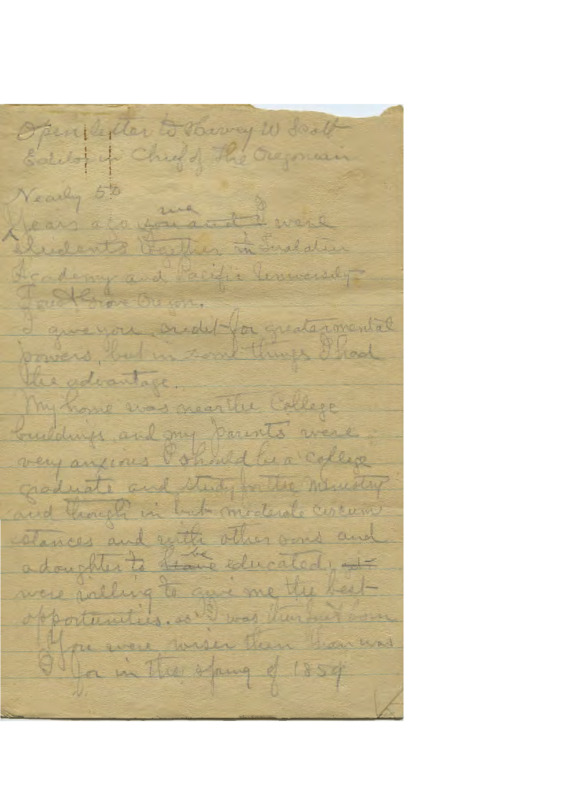 Open letter to Harvey W Scott
Editor in Chief of The Oregonian
Nearly 50
years ago you and I we were
students together in Tualatin
Academy and Pacific University
Forest Grove Oregon.
I give you credit for greater mental
powers, but in some things I had
the advantage.
My home was near the College
buildings, and my parents were
very anxious I should be a college
graduate and study for the ministry
and though in but moderate circum
stances and with other sons and
a daughter to have be educated,
were willing to give me the best
opportunities. as I was their
You were wiser than I was
for in the spring of 1859